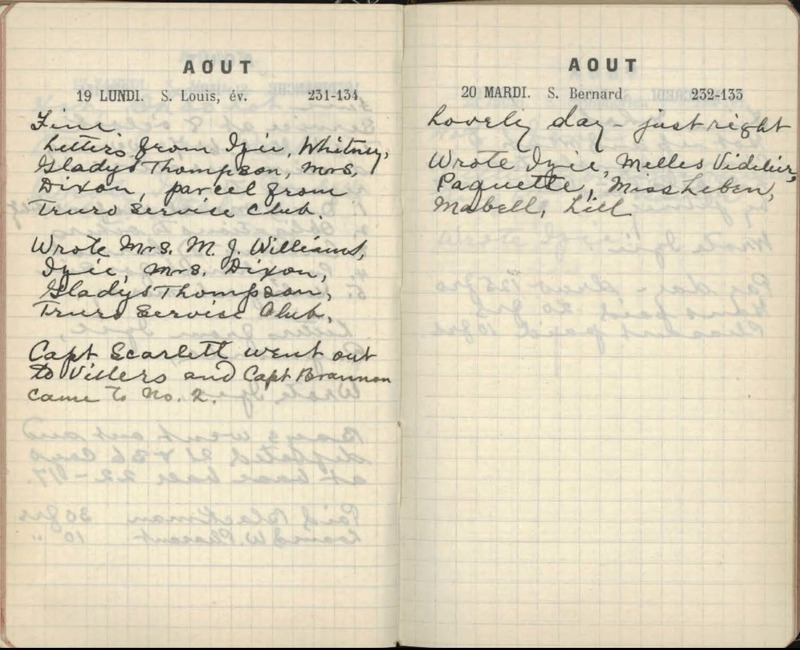 AOUT
19 LUNDI. S. Louis, év. 231-134
Fine.
Letters from Izie, Whitney,
Gladys Thompson, Mrs.
Dixon, parcel from
Truro Service Club.
Wrote Mrs. M. J. Williams,
Izie, Mrs. Dixon,
Gladys Thompson,
Truro Service Club.
Capt Scarlett went out
to Villers and Capt Brannon
came to No. 2.
AOUT
20 MARDI. S. Bernard 232-133
Lovely day - just right
Wrote Izie, Melles Videlier,
Paquette, Miss Leben,
Mabell, Lill